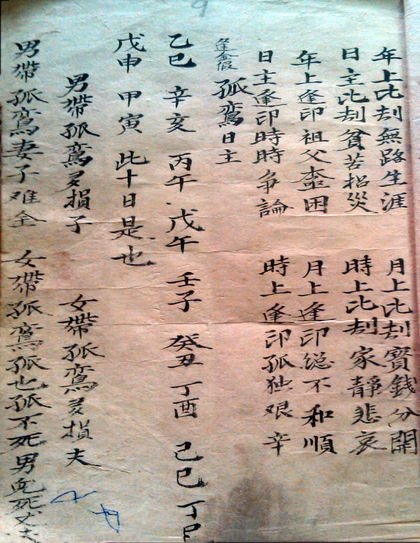 年上比刼無路生涯 月上比刼賓錢分開
日主比刼貧苦招災 時上比刼家靜悲哀
年上逢印祖父困 月上逢印総不和順
日主逢印時時争論 時上逢印孤独艰辛
孤鸞日主
乙巳 辛亥 丙午 戊午 壬子 癸丑 丁酉 己巳 丁巳
戊申 甲寅 此十日是也
男帶孤鸞多損子 女帶孤鸞多損夫
男帶孤鸞妻子难全 女帶孤鸞孤也孤不死男死丈夫